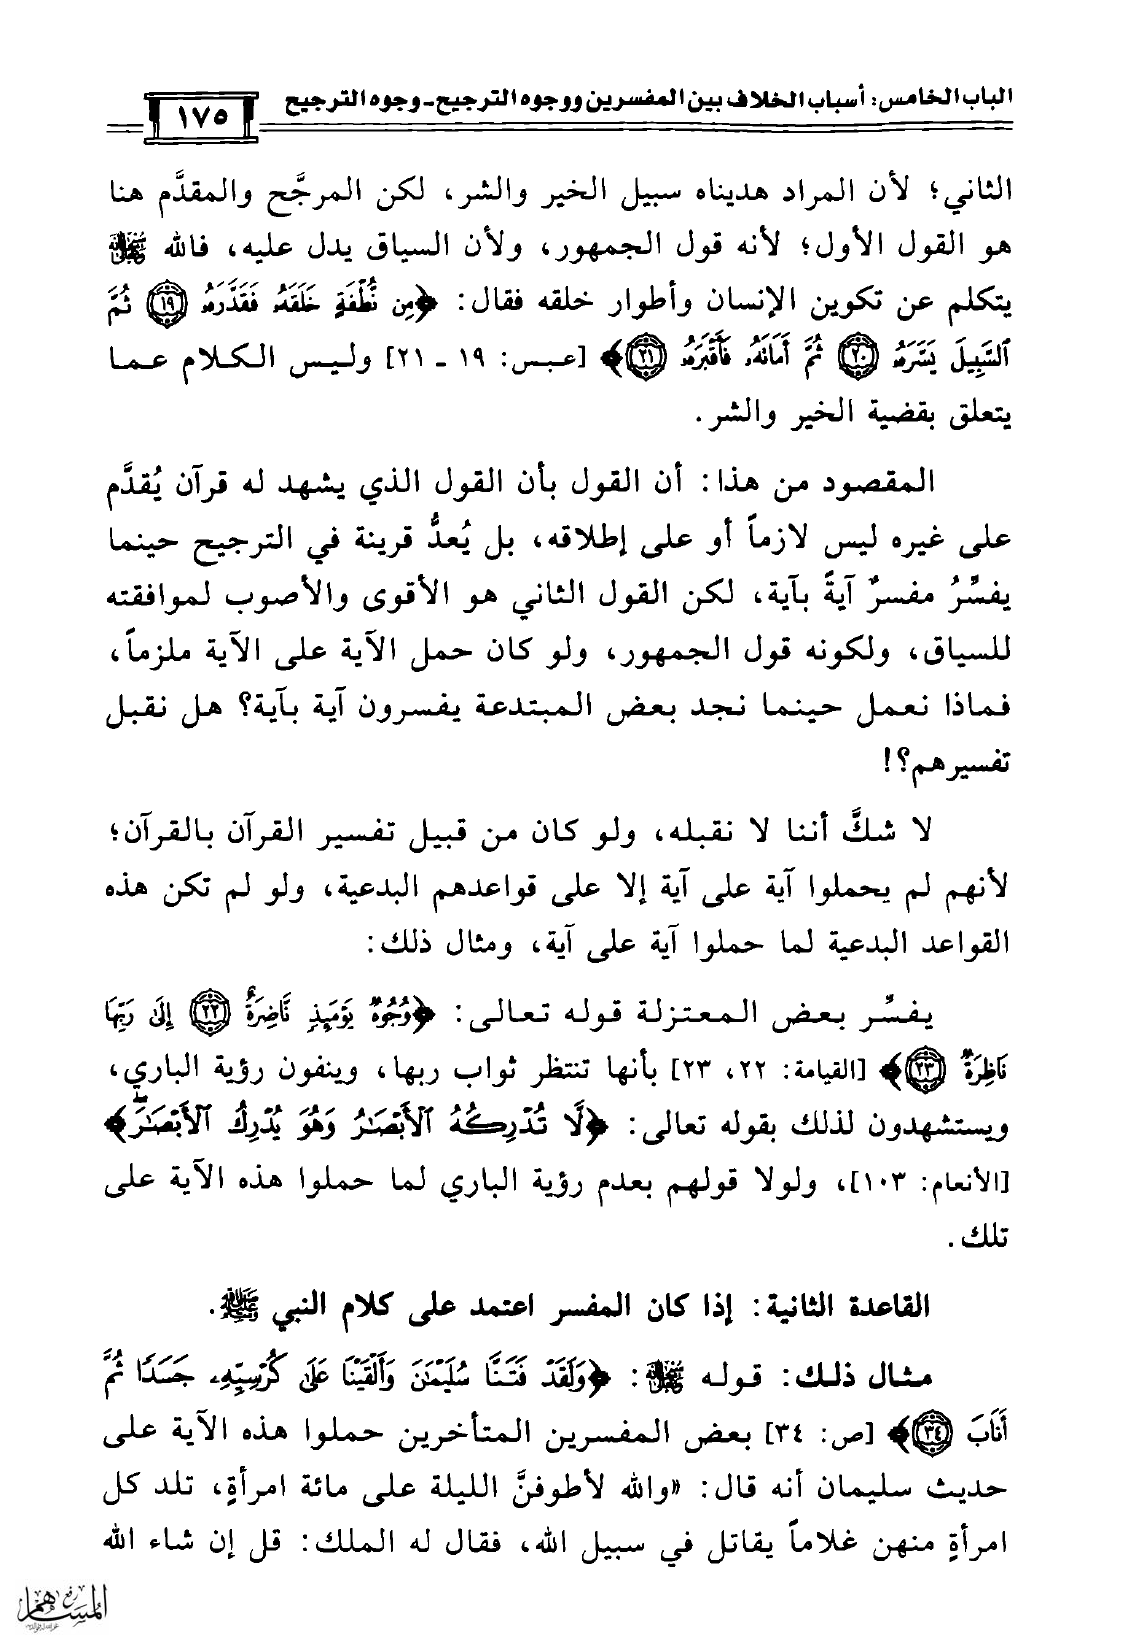 الباب الخامس: أسباب الخلاف بين المفسرين ووجوه الترجيح ـ وجوه الترجيح
١٧٥
الثاني؛ لأن المراد هديناه سبيل الخير والشر، لكن المرجَّح والمقدَّم هنا
هو القول الأول؛ لأنه قول الجمهور، ولأن السياق يدل عليه، فالله ﷻ
يتكلم عن تكوين الإنسان وأطوار خلقه فقال: ﴿مِن نُّطْفَةٍ خَلَقَهُۥ فَقَدَّرَهُۥ ١٩ ثُمَّ
ٱلسَّبِيلَ يَسَّرَهُۥ ٢٠ ثُمَّ أَمَاتَهُۥ فَأَقْبَرَهُۥ ٢١﴾ [عبس: ١٩ ـ ٢١] وليس الكلام عما
يتعلق بقضية الخير والشر.
المقصود من هذا: أن القول بأن القول الذي يشهد له قرآن يُقدَّم
على غيره ليس لازماً أو على إطلاقه، بل يُعدُّ قرينة في الترجيح حينما
يفسِّرُ مفسرٌ آيةً بآية، لكن القول الثاني هو الأقوى والأصوب لموافقته
للسياق، ولكونه قول الجمهور، ولو كان حمل الآية على الآية ملزماً،
فماذا نعمل حينما نجد بعض المبتدعة يفسرون آية بآية؟ هل نقبل
تفسيرهم؟!
لا شكَّ أننا لا نقبله، ولو كان من قبيل تفسير القرآن بالقرآن؛
لأنهم لم يحملوا آية على آية إلا على قواعدهم البدعية، ولو لم تكن هذه
القواعد البدعية لما حملوا آية على آية، ومثال ذلك:
يفسِّر بعض المعتزلة قوله تعالى: ﴿وُجُوهٌ يَوْمَئِذٍ نَّاضِرَةٌ ٢٢ إِلَىٰ رَبِّهَا
نَاظِرَةٌ ٢٣﴾ [القيامة: ٢٢، ٢٣] بأنها تنتظر ثواب ربها، وينفون رؤية الباري،
ويستشهدون لذلك بقوله تعالى: ﴿لَّا تُدْرِكُهُ ٱلْأَبْصَـٰرُ وَهُوَ يُدْرِكُ ٱلْأَبْصَـٰرَ﴾
[الأنعام: ١٠٣]، ولولا قولهم بعدم رؤية الباري لما حملوا هذه الآية على
تلك.
القاعدة الثانية: إذا كان المفسر اعتمد على كلام النبي ﷺ.
مثال ذلك: قوله ﷻ: ﴿وَلَقَدْ فَتَنَّا سُلَيْمَـٰنَ وَأَلْقَيْنَا عَلَىٰ كُرْسِيِّهِۦ جَسَدًا ثُمَّ
أَنَابَ ٣٤﴾ [ص: ٣٤] بعض المفسرين المتأخرين حملوا هذه الآية على
حديث سليمان أنه قال: «والله لأطوفنَّ الليلة على مائة امرأةٍ، تلد كل
امرأةٍ منهن غلاماً يقاتل في سبيل الله، فقال له الملك: قل إن شاء الله